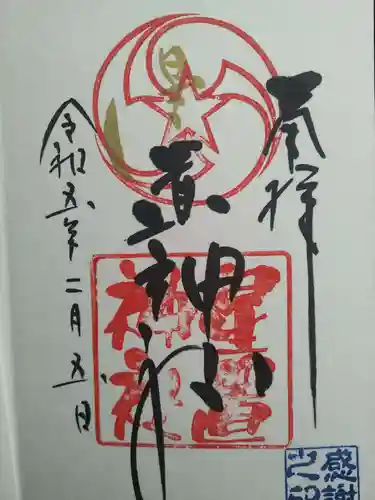 奉拝
星置神社
令和五年二月五日
星置
神社
感謝
之印